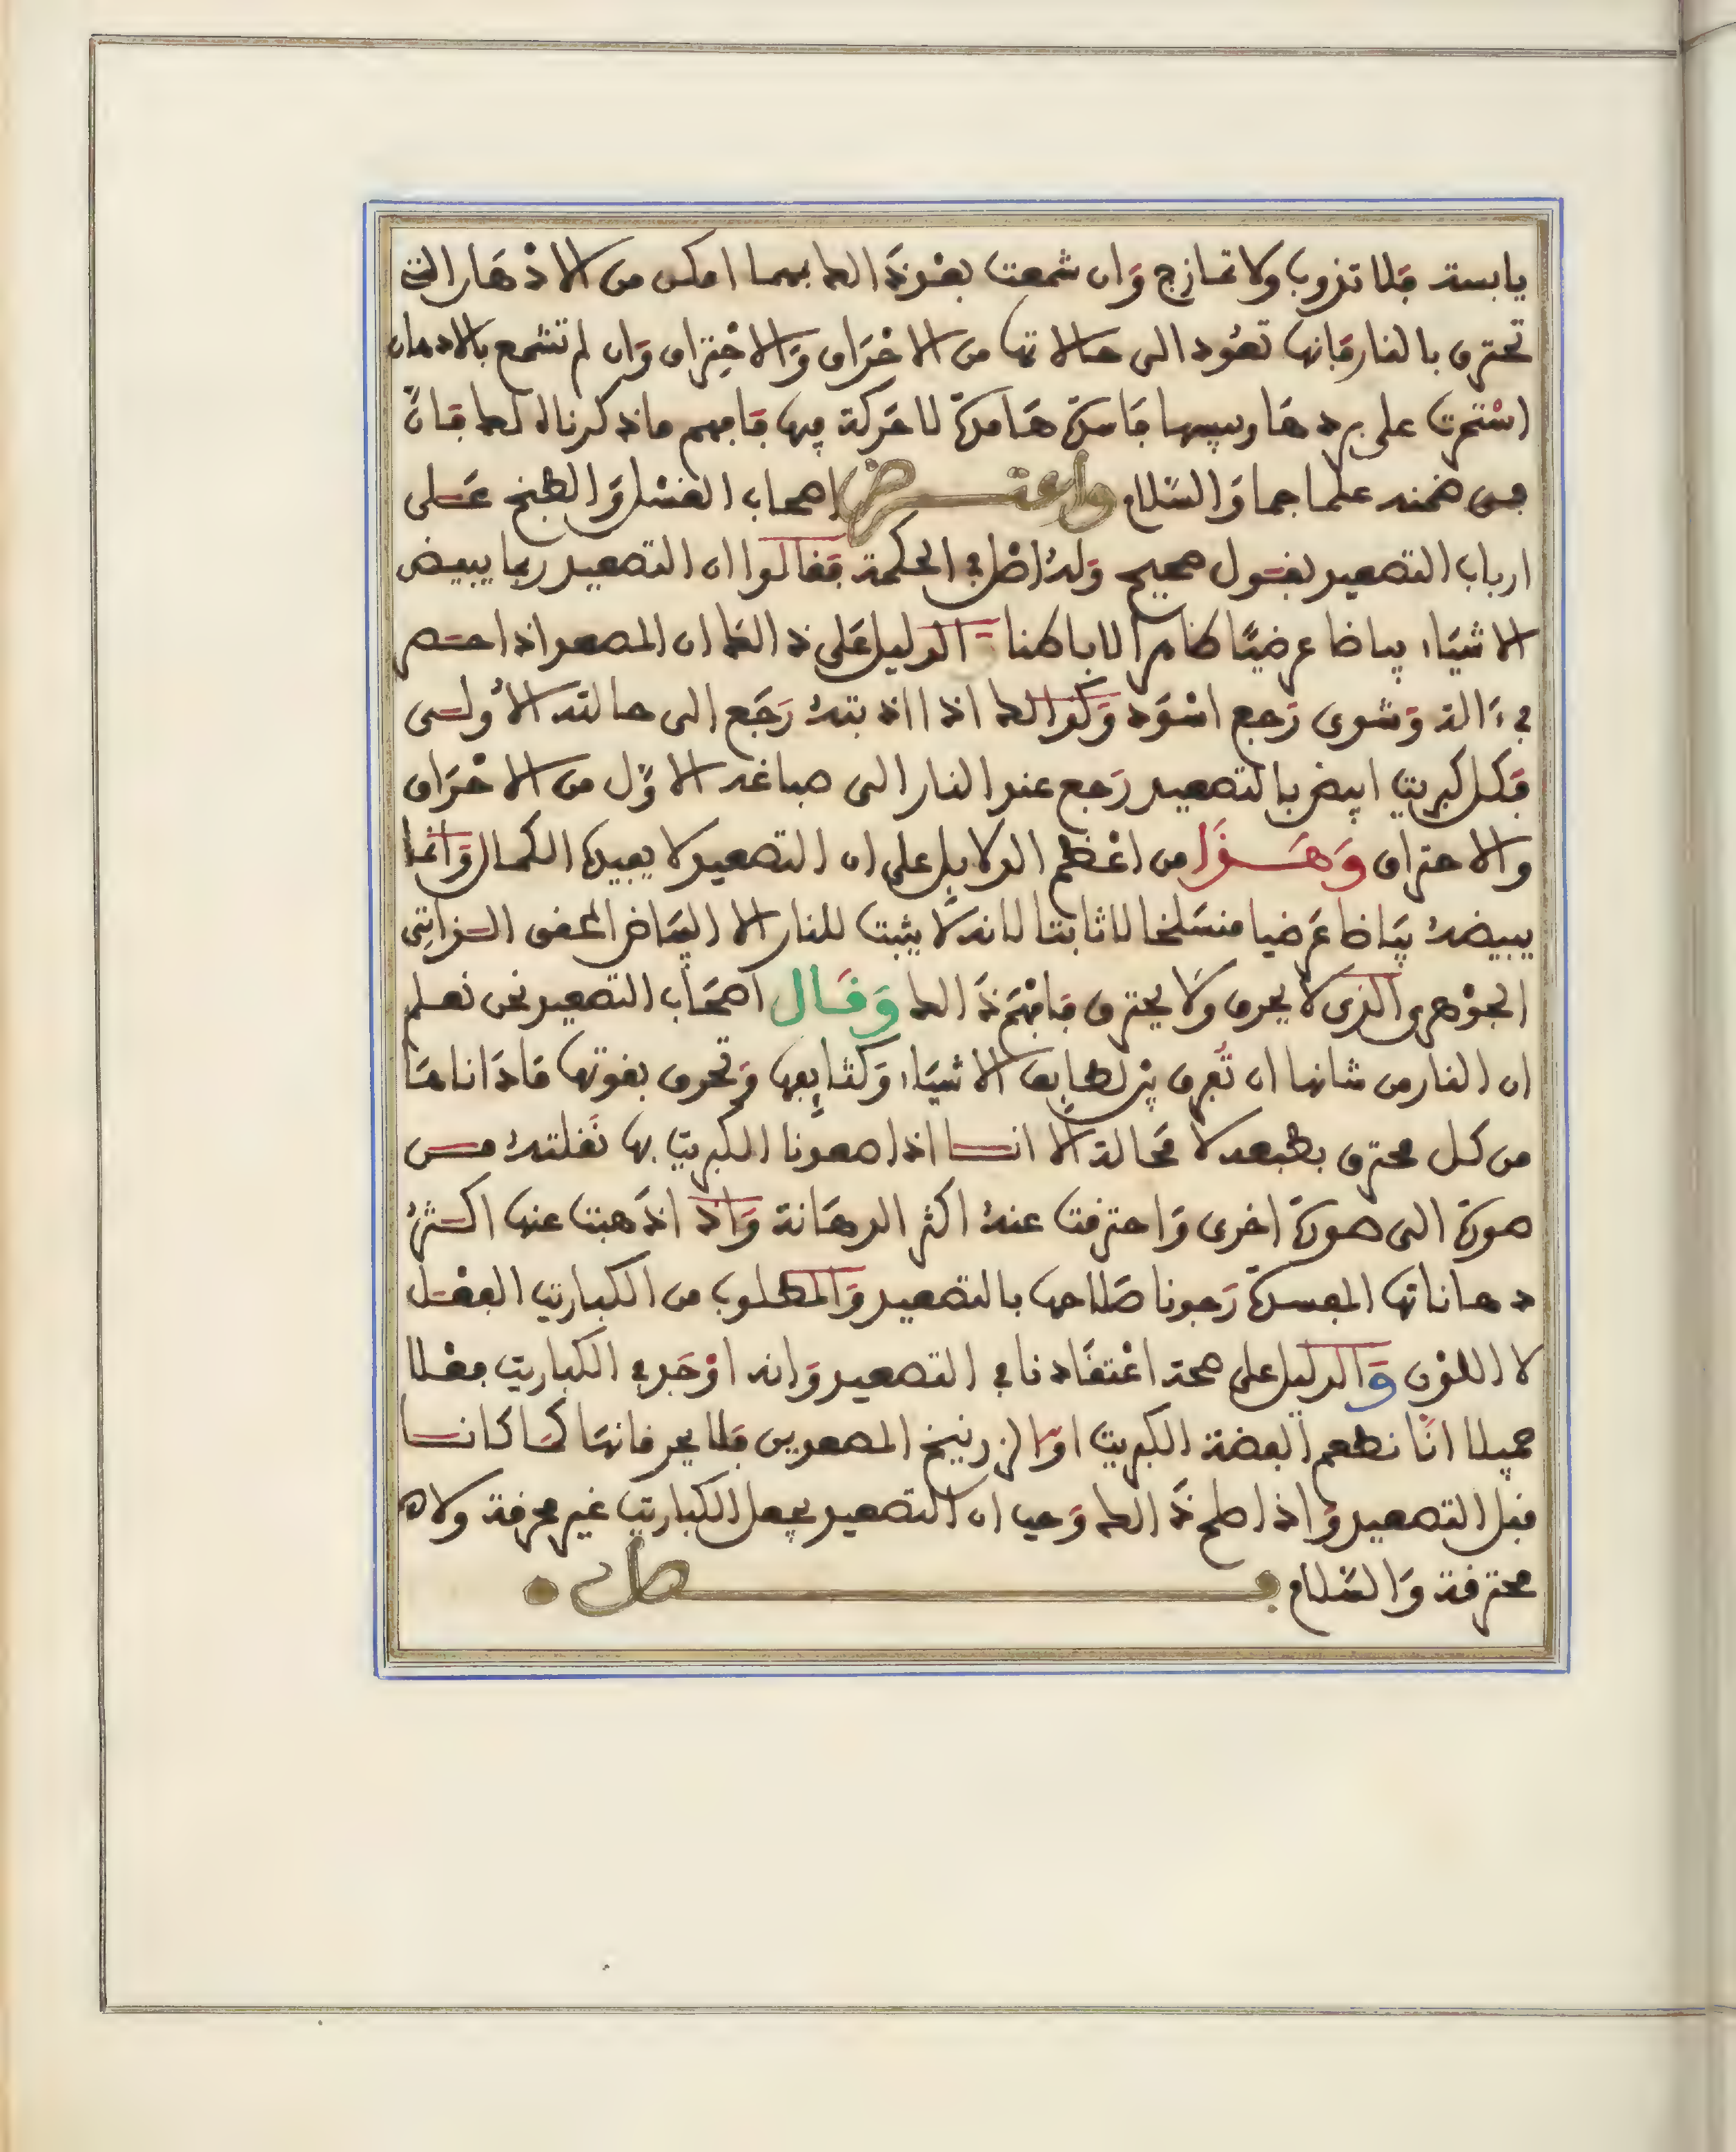 يابسة فلا تذوب ولا تمازج وان شمعت بعد ذالك بمهما امكن من الادهان التى
تحترق بالنار فانها تعود الى حالاتها من الاحراق والاحتراق وان لم تشمع بالادهان
استمرت على بردها ويبسها فاسدة هامدة لا حركة فيها فافهم ما ذكرناه لك فان
فى ضمنه علما جما والسلام واعترض اصحاب الغسل والطبخ على
ارباب التصعيد بقول صحيح وله اصل فى الحكمة فقالوا ان التصعيد ربما يبيض
الاشياء بياضا عرضيا ظاهرا لا باطنا الدليل على ذالك ان المصعد اذا
فى ءالة وشوى رجع اسود وكذالك اذا اذبته رجع الى حالته الاولى
فكل كبريت ابيض بالتصعيد رجع عند النار الى صباغه الاول من الاحراق
والاحتراق وهذا من اعظم الدلايل على ان التصعيد لا يفيده الكمال وانما
يبيضه بياضا عرضيا منسلخا لا ثابتا لانه لا يثبت للنار الا البياض المحقق الذاتى
الجوهرى الذى لا يحرق ولا يحترق فافهم ذالك وقال اصحاب التصعيد نحن نعلم
ان النار من شانها ان تفرق بين لطايف الاشياء وكثايفها وتحرق بقوتها ماداناها
من كل محترق بطبعه لا محالة الا انا اذا صعدنا الكبريت بها نقلته من
صورة الى صورة اخرى واحترقت عنه اكثر الدهانة واذ اذهبت عنها اكثر
دهاناتها المفسدة رجونا صلاحها بالتصعيد والمطلوب من الكباريت الفعل
لا اللون والدليل على صحة اعتقادنا فى التصعيد وانه اوجد فى الكباريت فعلا
جميلا انا نطعم الفضة الكبريت او الزرنيخ المصعدين فلا يحرقانها كما كانا
قبل التصعيد واذا صح ذالك وجب ان التصعيد يجعل الكباريت غير محرقة ولا
محترقة والسلام فصل